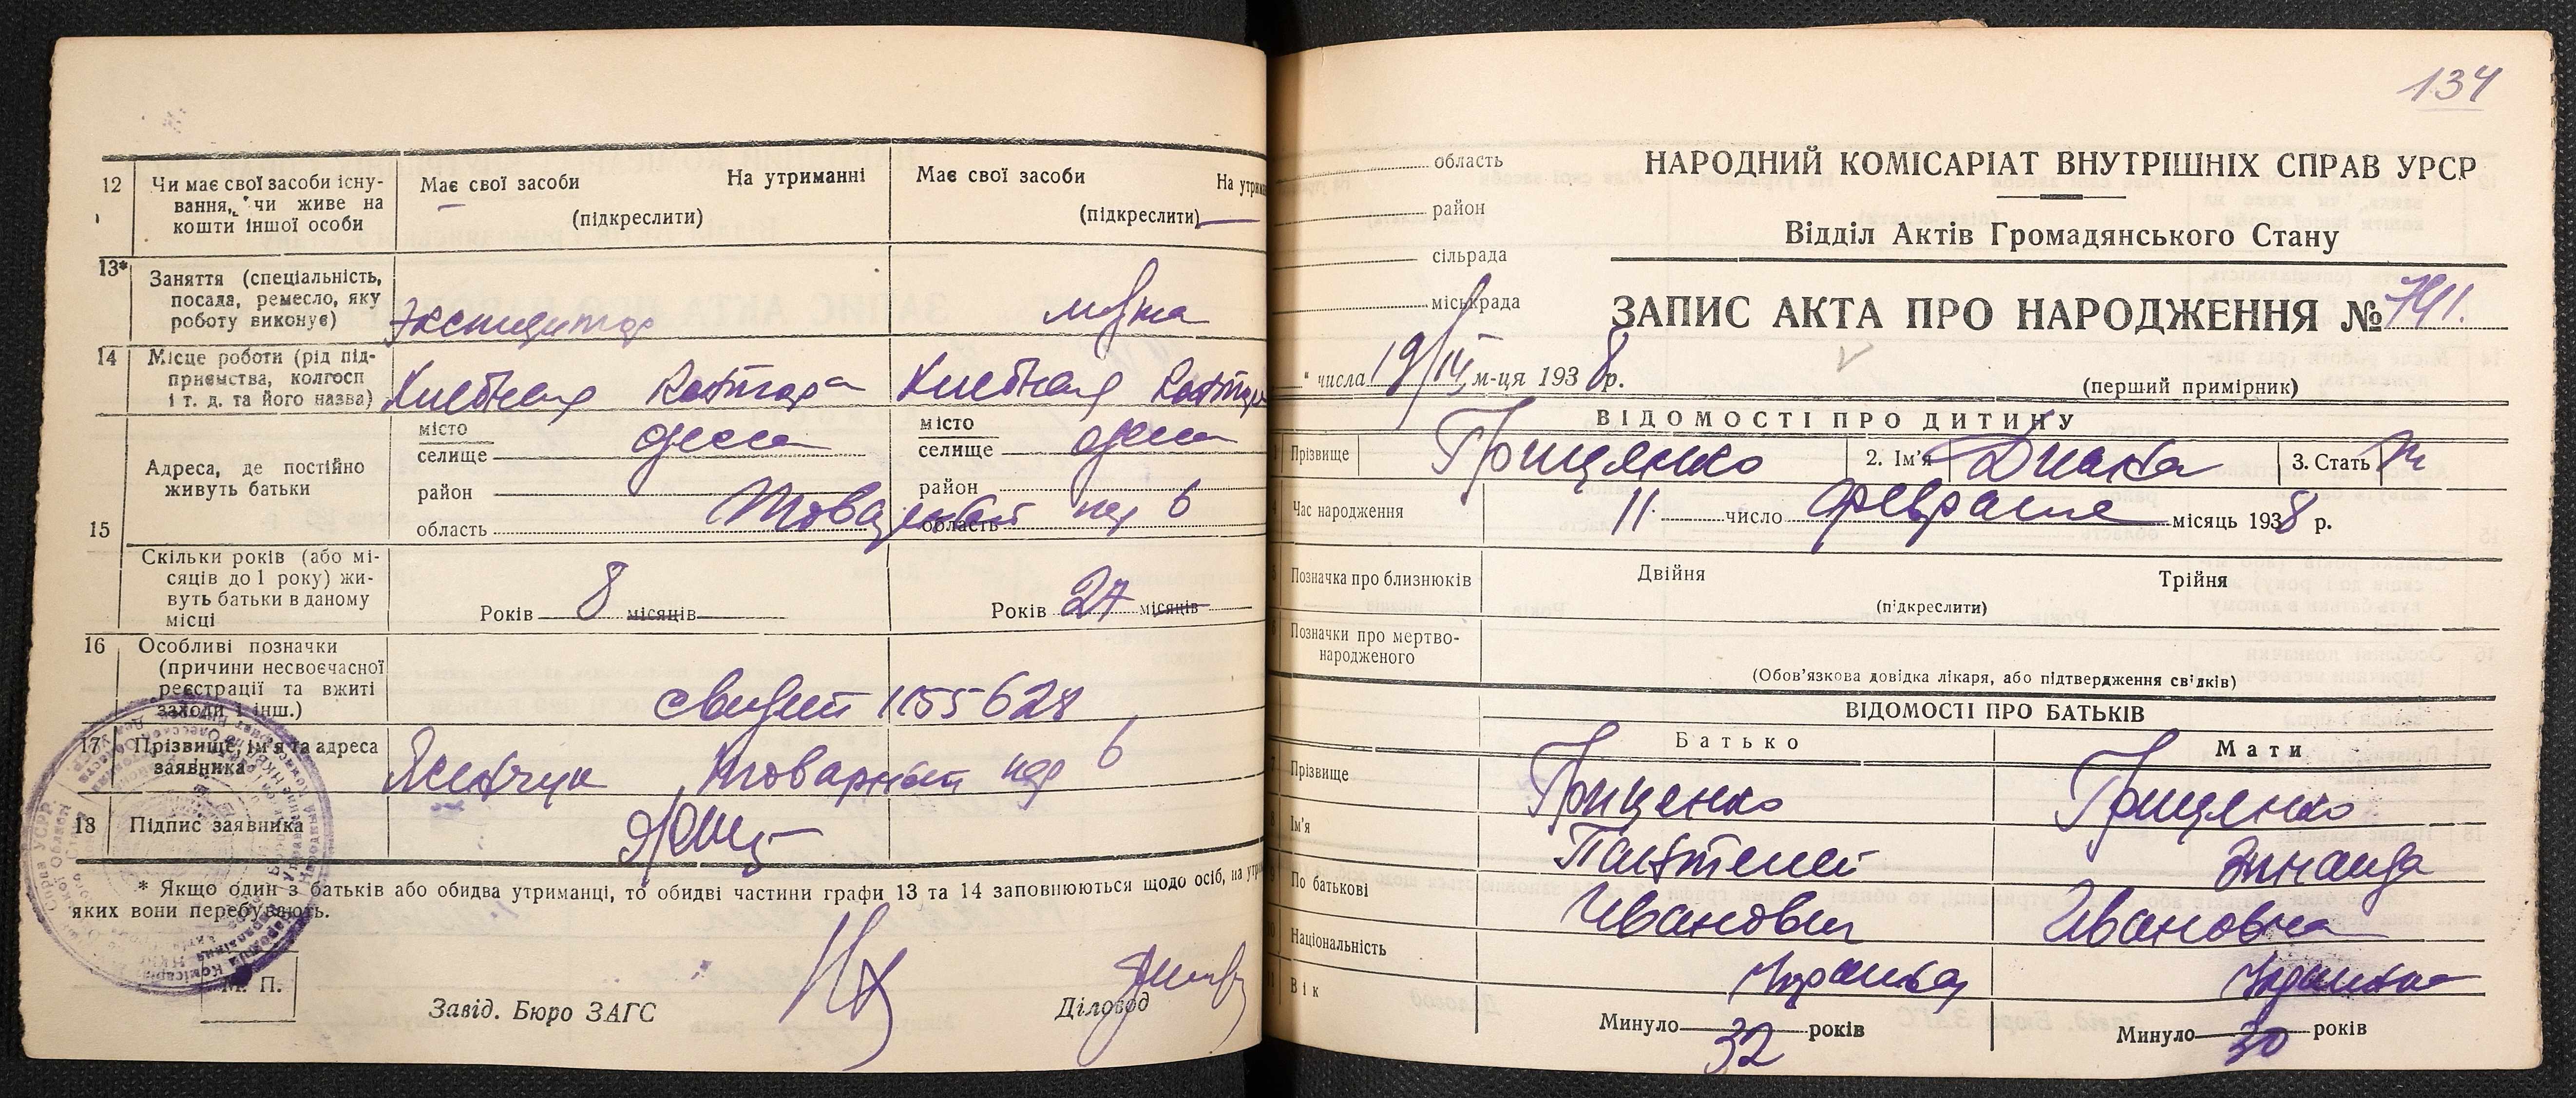 12
Чи має свої засоби існу-
вання, чи живе на
кошти іншої особи
Має свої засоби На утриманні
(підкреслити)
Має свої засоби На утрим
(підкреслити)
13*
Заняття (спеціальність,
посада, ремесло, яку
роботу виконує)
Экспедитор
мужа
14
Місце роботи (рід під-
приємства, колгосп
і т. д. та його назва)
Хлебная контора
Хлебная контора
15
Адреса, де постійно
живуть батьки
місто
селище Одесса
район
область
місто
селище Одесса
район
область
Товарный пер 6
Скільки років (або мі-
сяців до 1 року) жи-
вуть батьки в даному
місці
Років 8 місяців
Років 27 місяців
16
Особливі позначки
(причини несвоєчасної
реєстрації та вжиті
заходи і інш.)
свидет 1155628
17
Прізвище, ім'я та адреса
заявника
Товарный пер 6
18
Підпис заявника
* Якщо один з батьків або обидва утриманці, то обидві частини графи 13 та 14 заповнюються щодо осіб, на утри
яких вони перебувають.
М. П.
Завід. Бюро ЗАГС
Діловод
134
область
район
сільрада
міськрада
НАРОДНИЙ КОМІСАРІАТ ВНУТРІШНІХ СПРАВ УРСР
Відділ Актів Громадянського Стану
ЗАПИС АКТА ПРО НАРОДЖЕННЯ № 741.
" числа 19/IV м-ця 1938 р.
(перший примірник)
ВІДОМОСТІ ПРО ДИТИНУ
Прізвище Грищенко 2. Ім'я Диана 3. Стать ж
Час народження 11 число февраля місяць 1938 р.
Позначка про близнюків Двійня Трійня
(підкреслити)
Позначки про мертво-
народженого
(Обов'язкова довідка лікаря, або підтвердження свідків)
ВІДОМОСТІ ПРО БАТЬКІВ
Батько Мати
Прізвище Грищенко Грищенко
Ім'я Пантелей Зинаида
По батькові Иванович Ивановна
Національність Украинец Украинка
Вік
Минуло 32 років
Минуло 30 років